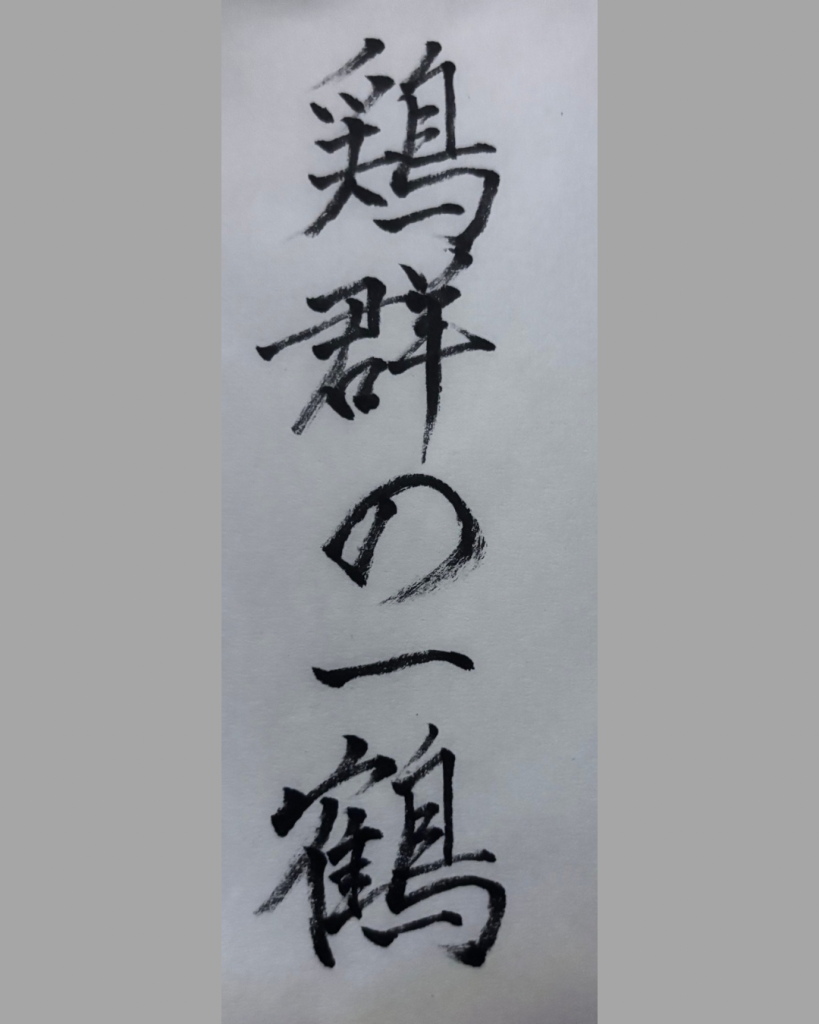 鶏群の一鶴